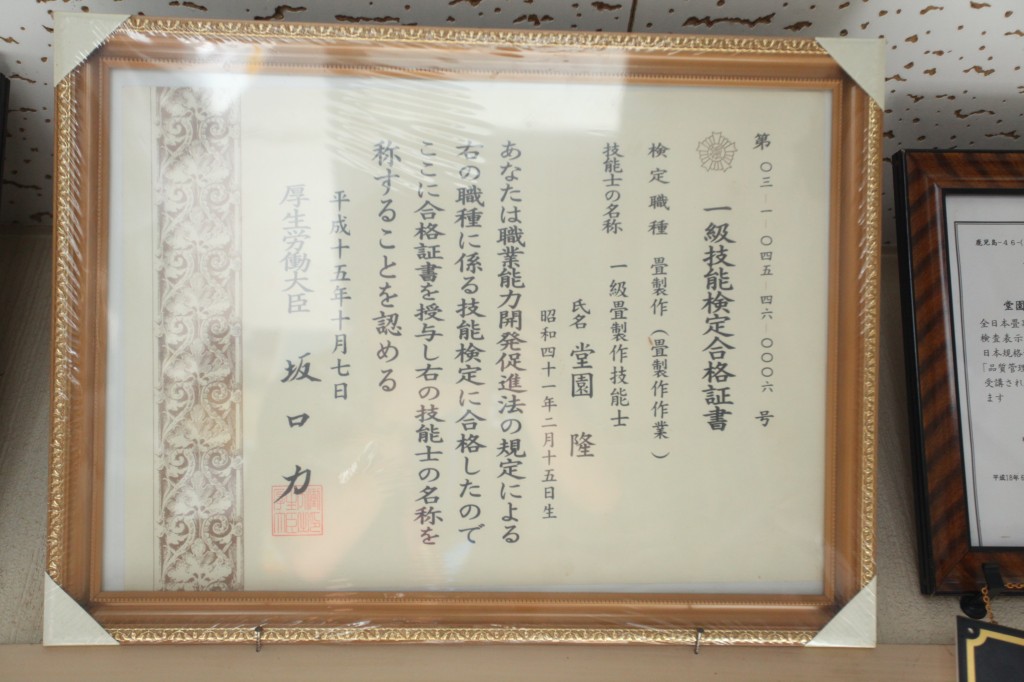 第〇三-一-〇四五-四六-〇〇〇六号
一級技能検定合格証書
検定職種 畳製作（畳製作作業）
技能士の名称 一級畳製作技能士
氏名 堂園 隆
昭和四十一年二月十五日生
あなたは職業能力開発促進法の規定による
右の職種に係る技能検定に合格したので
ここに合格証書を授与し右の技能士の名称を
称することを認める
平成十五年十月七日
厚生労働大臣 坂口力
鹿児島-46-
堂園
全日本畳
検査表示
日本規格
「品質管理
受講され
ます
平成18年